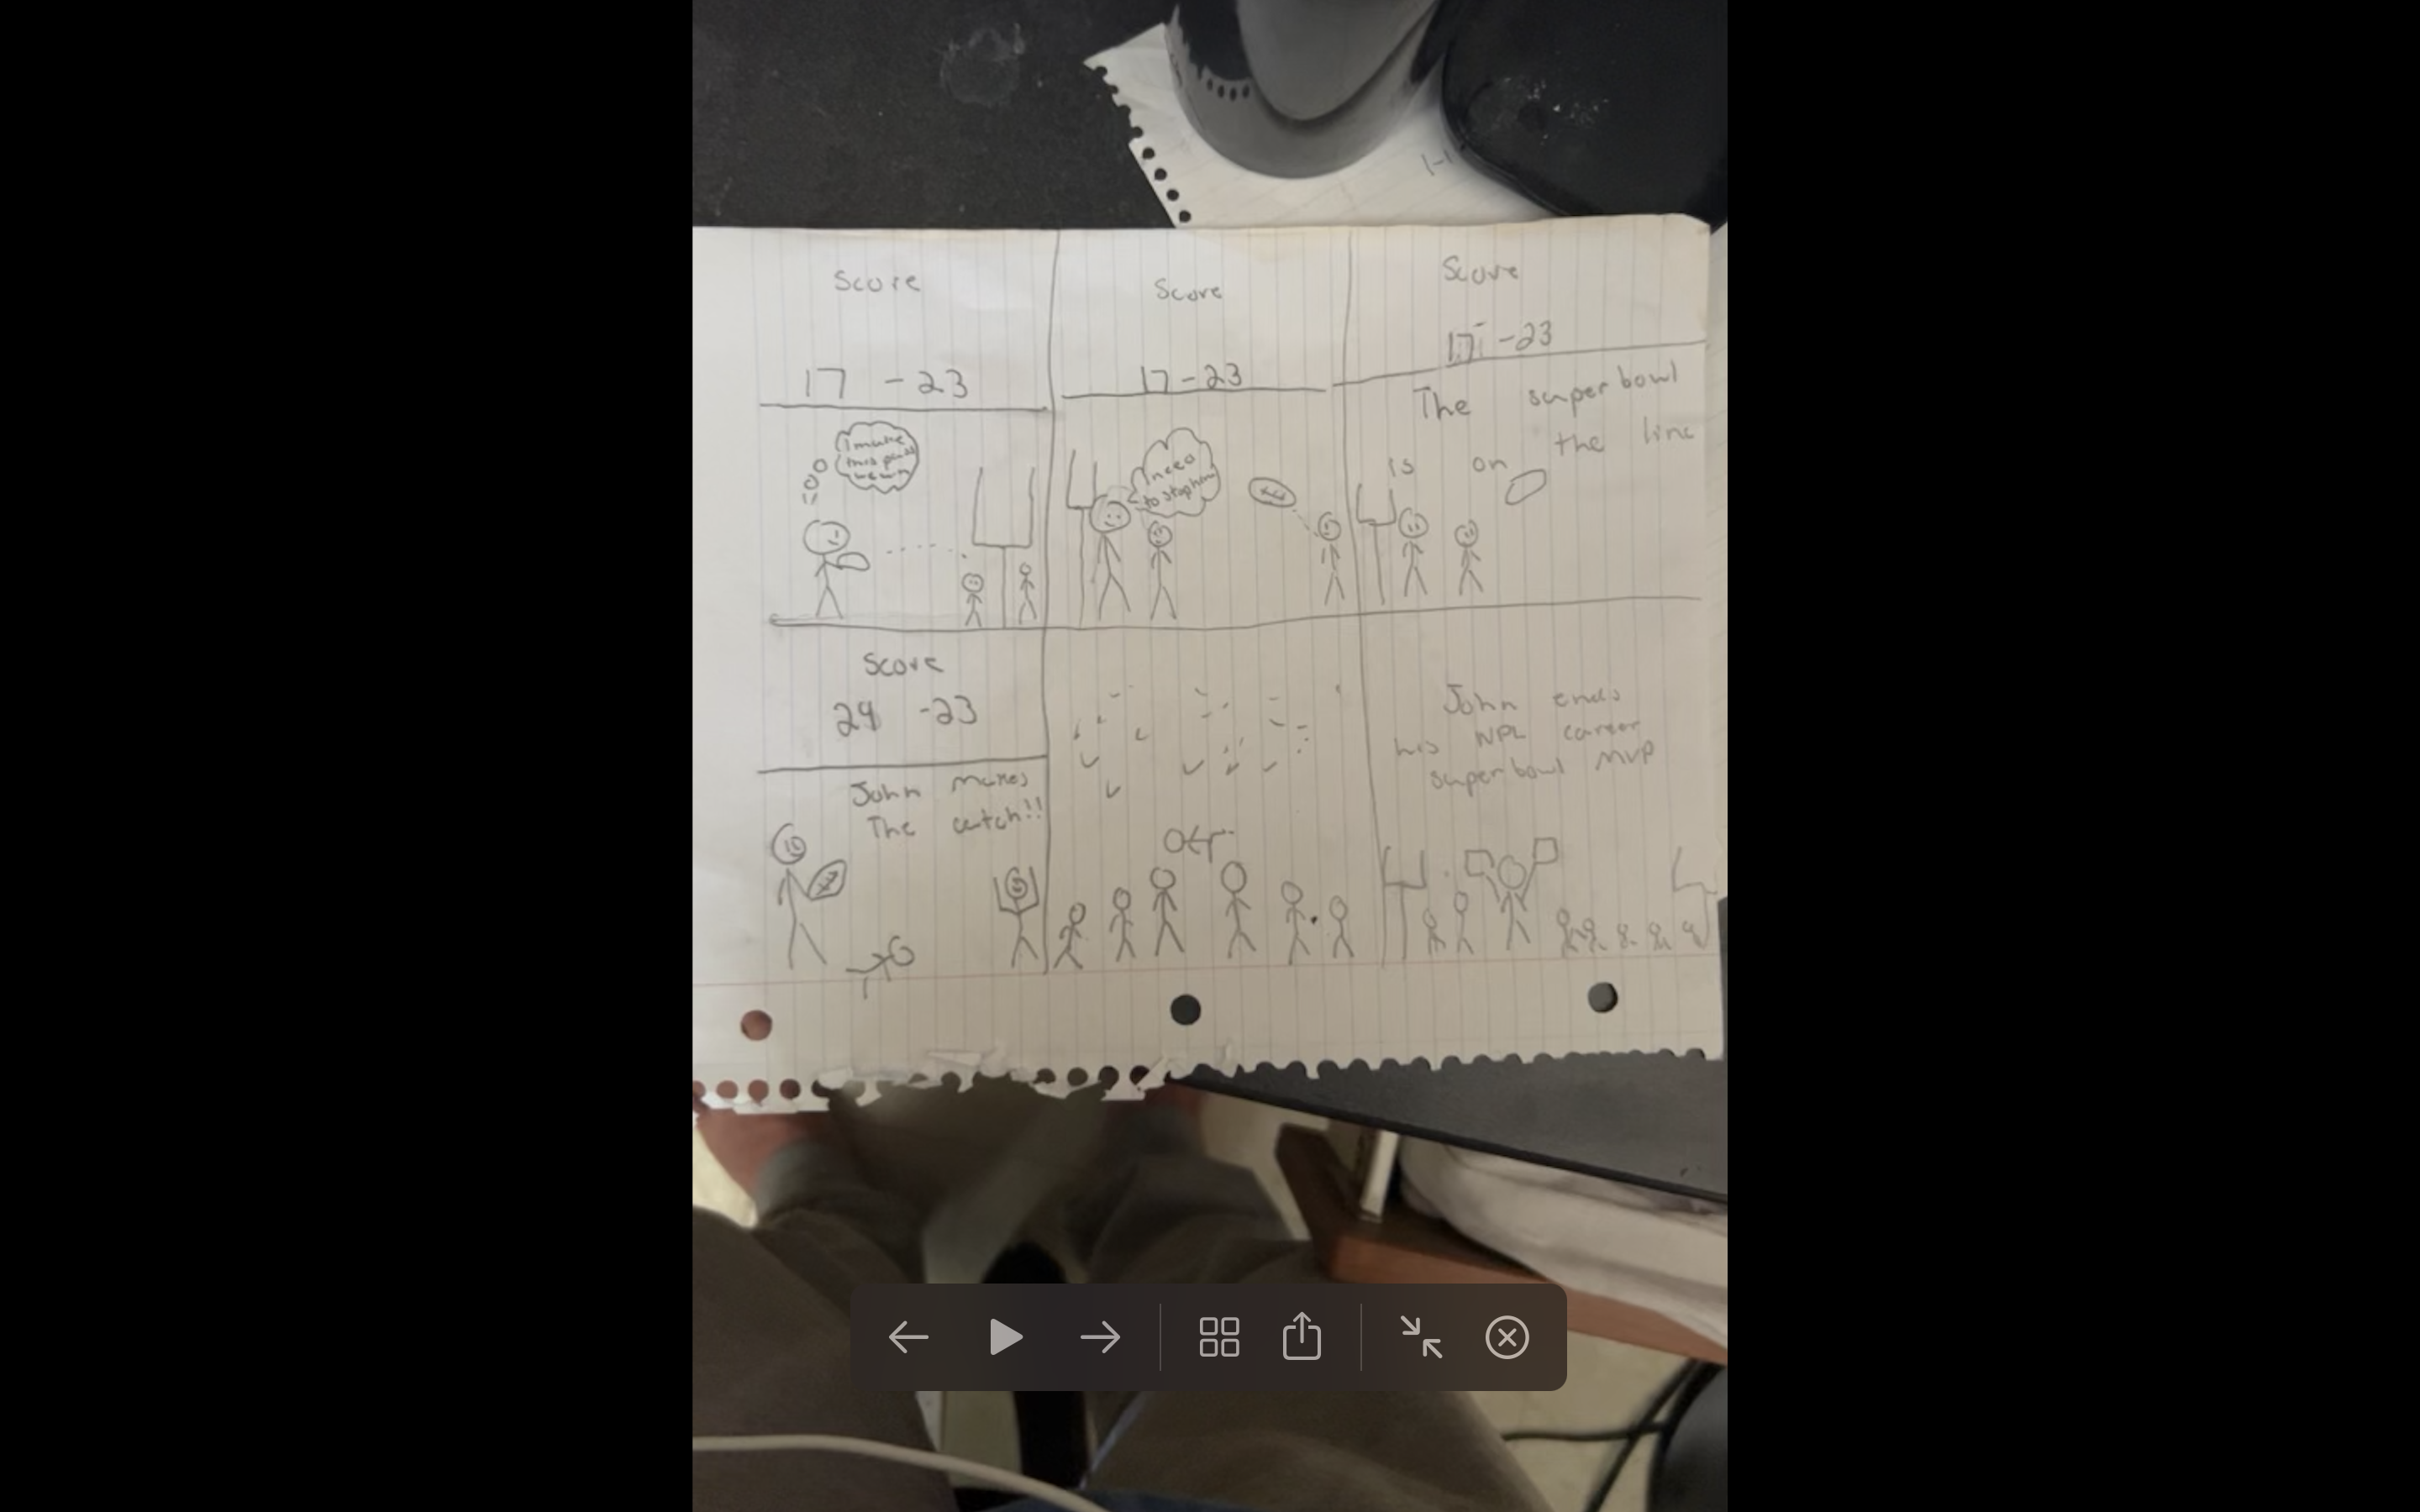 Score
17 - 23
I make
this pass
we win
Score
17 - 23
I need
to stop him
Score
17 - 23
The superbowl
is on the line
Score
24 - 23
John makes
The catch!!
John ends
his NFL career
superbowl MVP